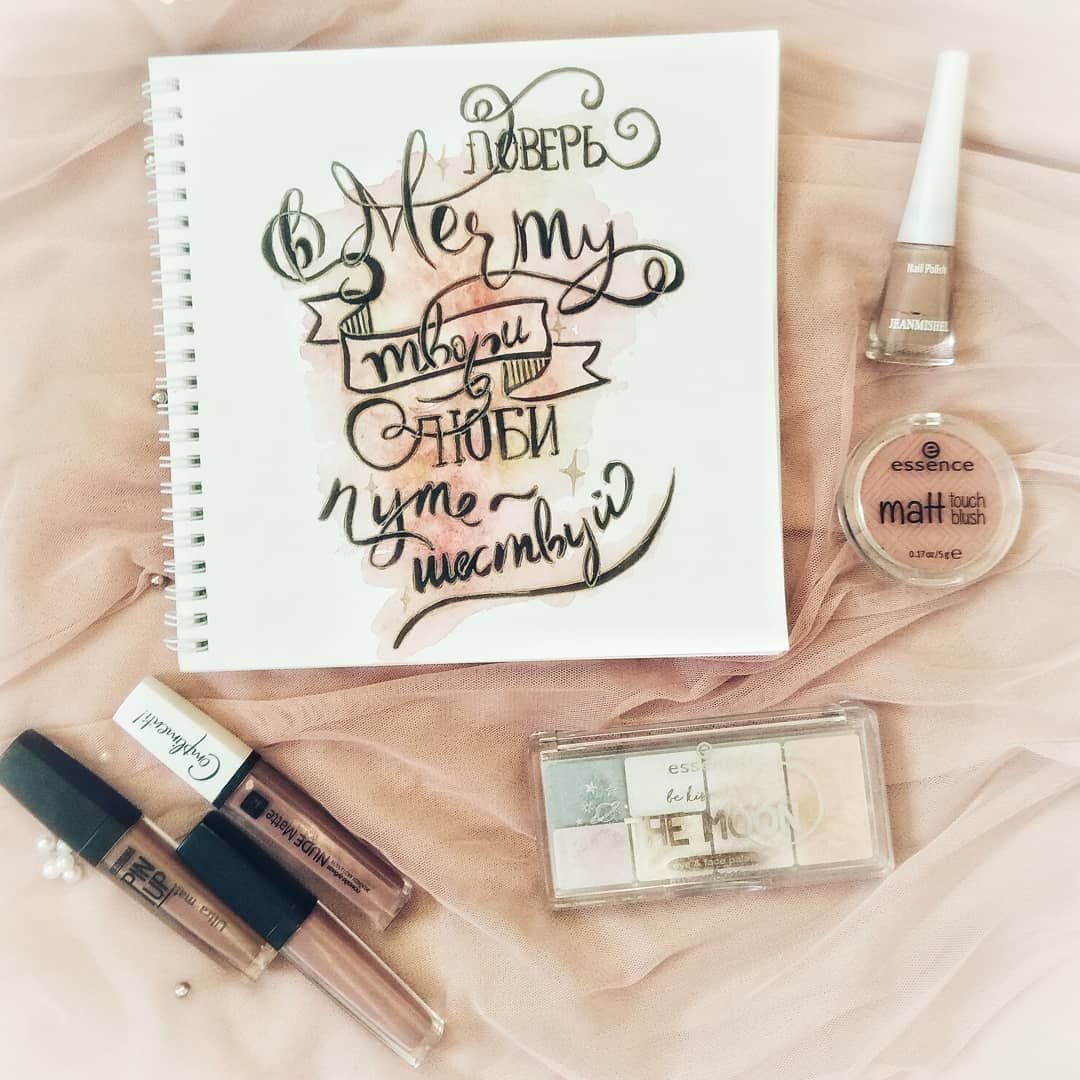 ПОВЕРЬ
в Мечту
твори
ЛЮБИ
путе-
шествуй
Nail Polish
JEANMISHEL
essence
matt touch blush
0.17 oz/5 g e
essence
be
THE MOON
& face palette
Compliment!
NUDE Matte
PIN UP
Ultra matt